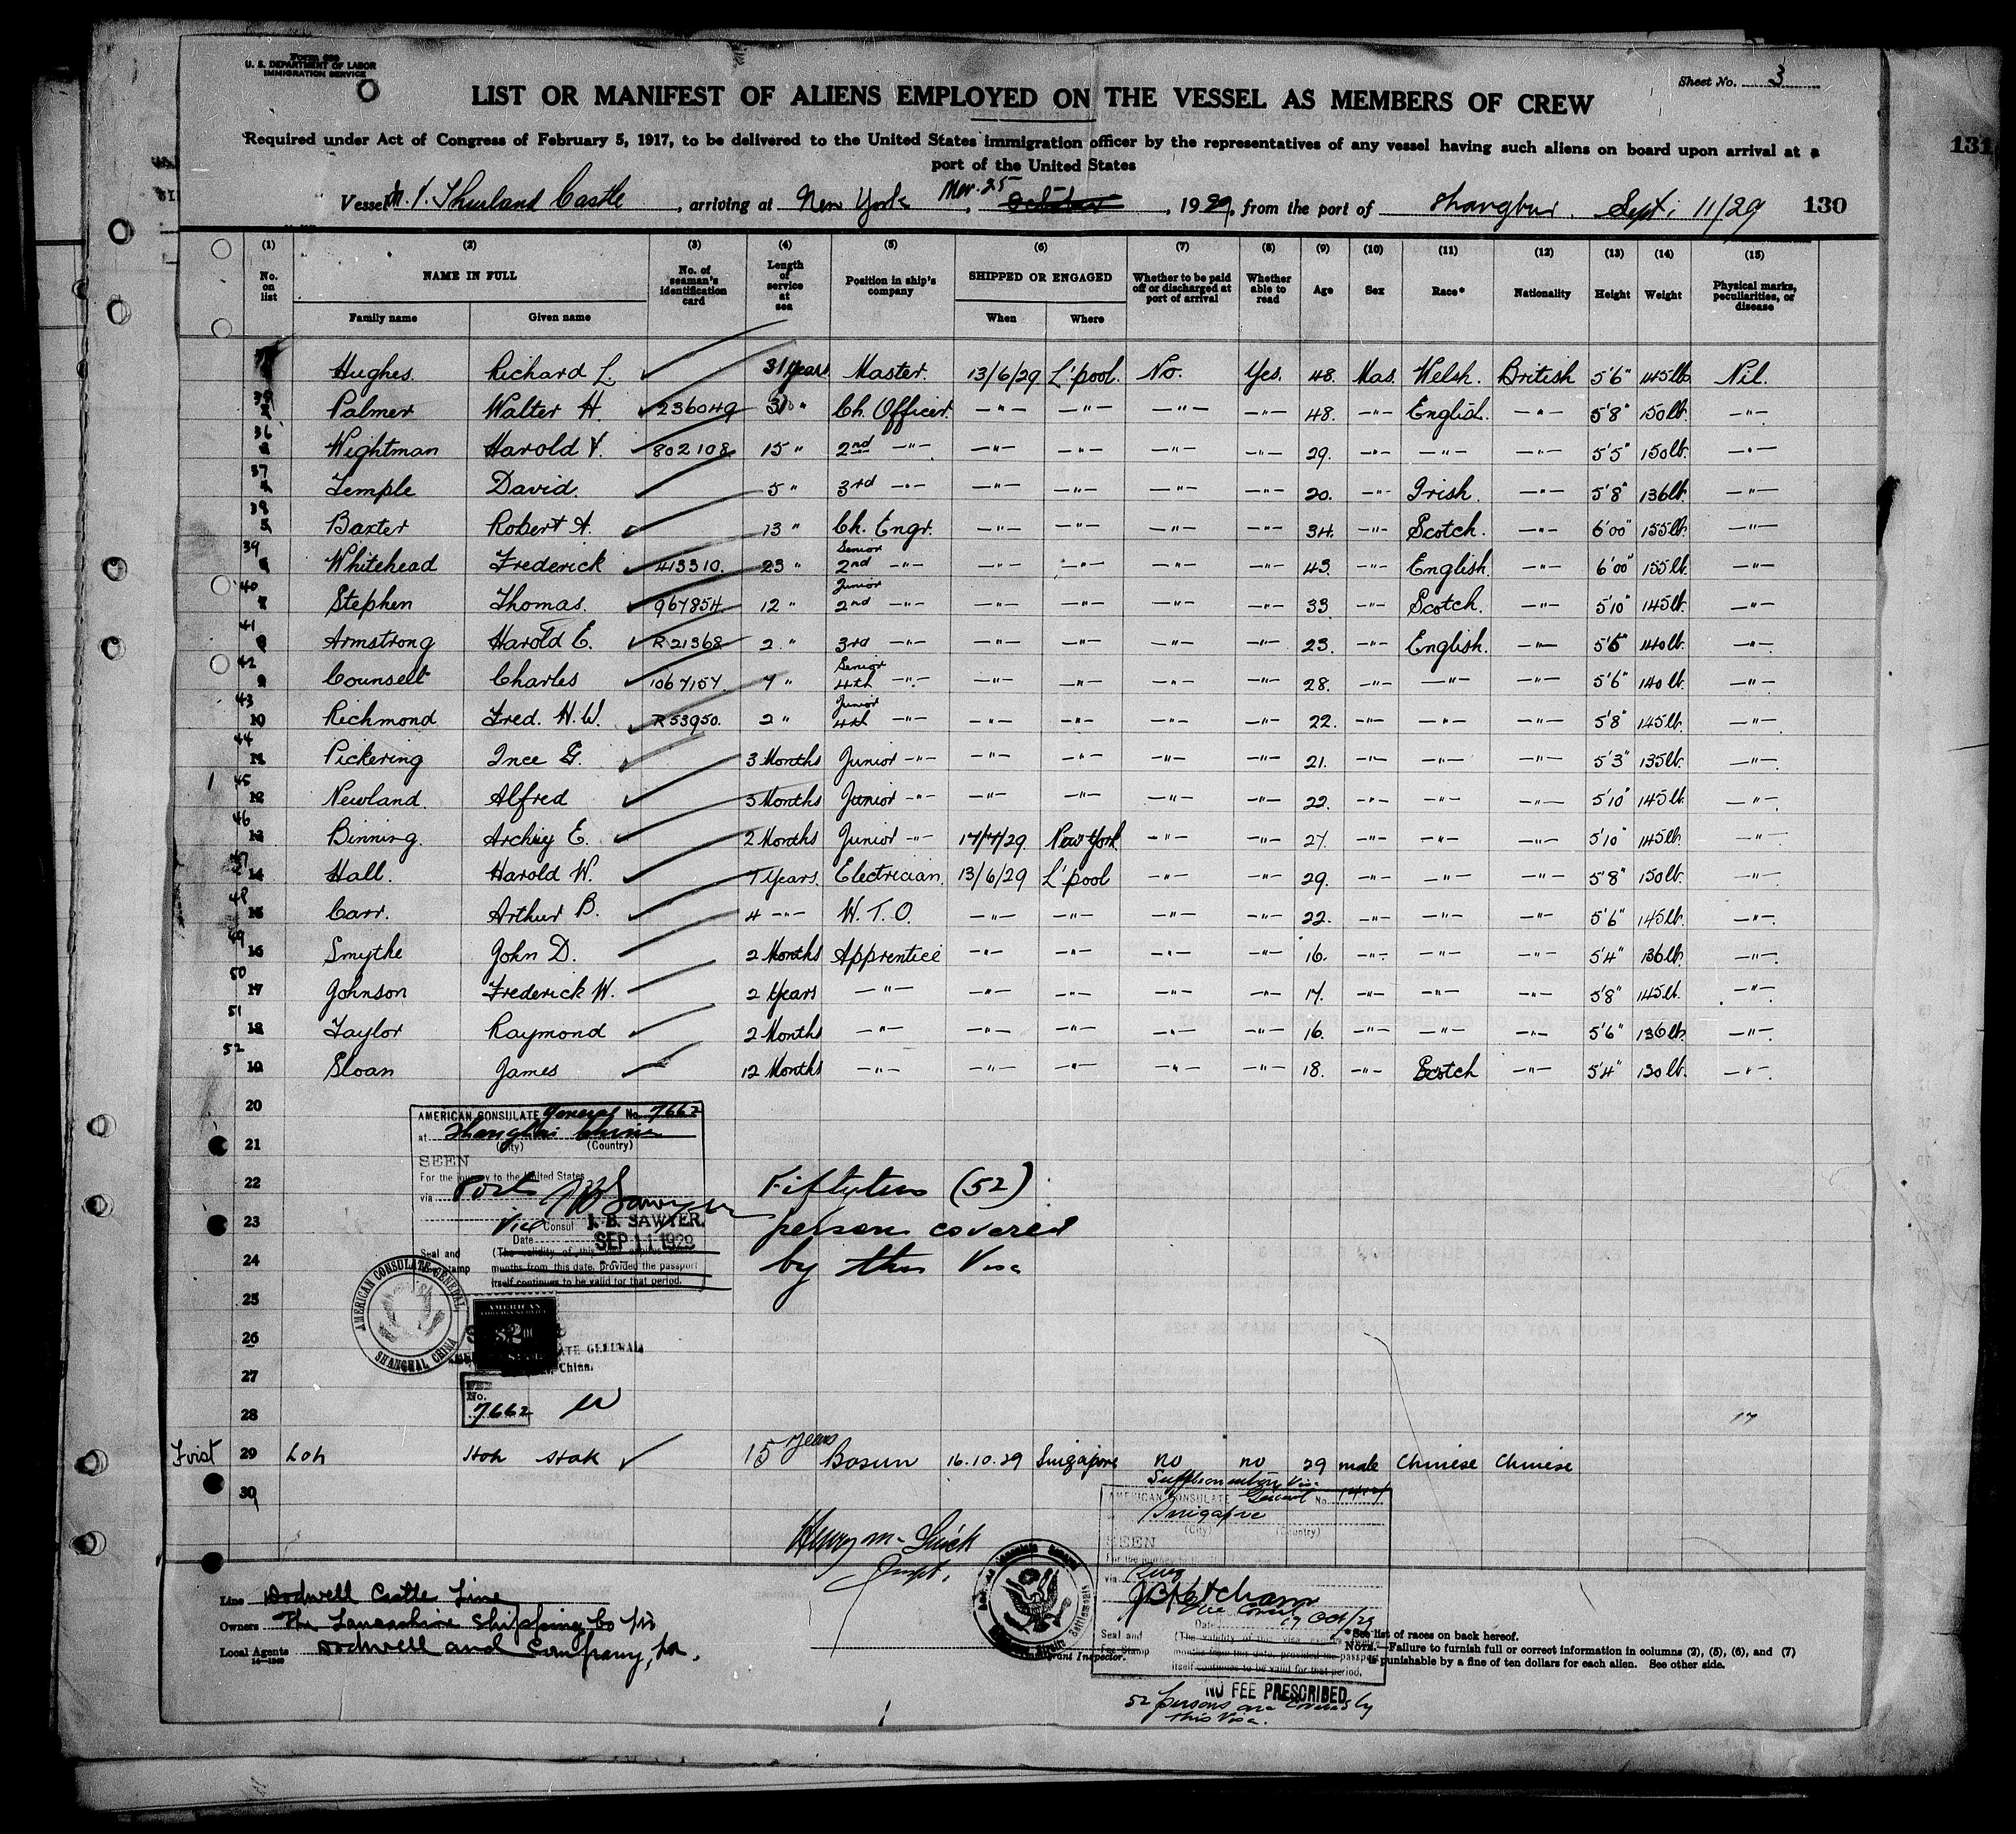 Form 689
U. S. DEPARTMENT OF LABOR
IMMIGRATION SERVICE
Sheet No. 3
LIST OR MANIFEST OF ALIENS EMPLOYED ON THE VESSEL AS MEMBERS OF CREW
Required under Act of Congress of February 5, 1917, to be delivered to the United States immigration officer by the representatives of any vessel having such aliens on board upon arrival at a
port of the United States
131
Vessel M.V. Thurland Castle, arriving at New York, Nov. 25 October, 1929, from the port of Shanghai. Sept. 11/29 130
(1) (2) (3) (4) (5) (6) (7) (8) (9) (10) (11) (12) (13) (14) (15)
No. on list NAME IN FULL No. of seaman's identification card Length of service at sea Position in ship's company SHIPPED OR ENGAGED Whether to be paid off or discharged at port of arrival Whether able to read Age Sex Race* Nationality Height Weight Physical marks, peculiarities, or disease
Family name Given name When Where
Hughes. Richard L. 31 years Master. 13/6/29 L'pool. No. Yes. 48. Mas. Welsh. British 5'6" 145lb. Nil.
Palmer Walter H. 236049 " Ch. Officer. —"— —"— —"— —"— 48. —"— English. —"— 5'8" 150lb. —"—
36 Wightman Harold V. 802108 15 " 2nd —"— —"— —"— —"— —"— 29. —"— —"— —"— 5'5" 150lb. —"—
37 Temple David. 5 " 3rd —"— —"— —"— —"— —"— 20. —"— Irish. —"— 5'8" 136lb. —"—
38 5 Baxter Robert A. 13 " Ch. Engr. —"— —"— —"— —"— 34. —"— Scotch. —"— 6'00" 155lb. —"—
39 Whitehead Frederick 413310. 23 " Senior 2nd —"— —"— —"— —"— —"— 43. —"— English. —"— 6'00" 155lb. —"—
40 Stephen Thomas. 967854 12 " Junior 2nd —"— —"— —"— —"— —"— 33 —"— Scotch. —"— 5'10" 145lb. —"—
41 Armstrong Harold E. R21368 2 " 3rd —"— —"— —"— —"— —"— 23. —"— English. —"— 5'5" 140lb. —"—
42 Counsell Charles 1067157. 7 " Senior 4th —"— —"— —"— —"— —"— 28. —"— —"— —"— 5'6" 140lb. —"—
43 10 Richmond Fred. H.W. R53950. 2 " Junior 4th —"— —"— —"— —"— —"— 22. —"— —"— —"— 5'8" 145lb. —"—
44 11 Pickering Ince G. 3 Months Junior —"— —"— —"— —"— —"— 21. —"— —"— —"— 5'3" 135lb. —"—
1 45 12 Newland. Alfred 3 Months Junior —"— —"— —"— —"— —"— 22. —"— —"— —"— 5'10" 145lb. —"—
46 13 Binning. E. 2 Months Junior —"— 17/7/29 New York —"— —"— 27. —"— —"— —"— 5'10 145lb. —"—
47 14 Hall. Harold W. 7 Years. Electrician. 13/6/29 L'pool —"— —"— 29. —"— —"— —"— 5'8" 150lb. —"—
48 15 Carr. Arthur B. 4 —"— W. T. O. —"— —"— —"— —"— 22. —"— —"— —"— 5'6" 145lb. —"—
49 16 Smythe John D. 2 Months Apprentice —"— —"— —"— —"— 16. —"— —"— —"— 5'4" 136lb. —"—
50 17 Johnson Frederick W. 2 Years —"— —"— —"— —"— —"— 17. —"— —"— —"— 5'8" 145lb. —"—
51 18 Taylor Raymond 2 Months —"— —"— —"— —"— —"— 16. —"— —"— —"— 5'6" 136lb. —"—
52 19 Sloan James 12 Months —"— —"— —"— —"— —"— 18. —"— Scotch —"— 5'4" 130lb. —"—
20
AMERICAN CONSULATE General No. 7662
at Shanghai China
(City) (Country)
21
SEEN
For the journey to the United States
22
via Port
JBSawyer
Vice Consul J. B. SAWYER.
23
Date SEP 11 1929
Fiftytwo (52)
persons covered
by this Visa
Seal and Fee Stamp (The validity of this visa expires
months from this date, provided the passport
itself continues to be valid for that period.
24
25
AMERICAN CONSULATE GENERAL,
SHANGHAI, CHINA
AMERICAN
FOREIGN SERVICE
$2.00
26
27
FEE
No.
7662
28
17
29 Loh Hoh Hak 15 years Bosun 16.10.29 Singapore no no 29 male Chinese Chinese
30
Supplementary Visa
AMERICAN CONSULATE General No.
Singapore
(City) (Country)
SEEN
For the journey to the United States
via
Vice Consul
Date 19 Oct/29
Seal and Fee Stamp (The validity of this visa expires
months from this date, provided the passport
itself continues to be valid for that period.
NO FEE PRESCRIBED
52 persons are covered by
this Visa.
Inspt.
Immigrant Inspector.
Line Dodwell Castle Line
Owners The Lancashire Shipping Co Ltd
Local Agents Dodwell and Company, Ltd.
14—1240
*See list of races on back hereof.
NOTE.—Failure to furnish full or correct information in columns (2), (5), (6), and (7)
is punishable by a fine of ten dollars for each alien. See other side.